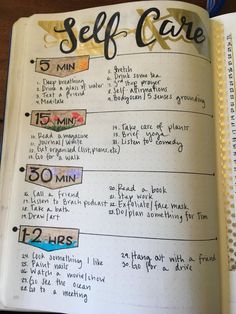 Self Care
5 MIN
1. Deep breathing
2. Drink a glass of water
3. Text a friend
4. Meditate
5. Stretch
6. Drink some tea
7. 3rd step prayer
8. Self affirmations
9. Bodyscan / 5 senses grounding
15 MIN
10. Read a magazine
11. Journal/Write
12. Get organized (list, plans, etc)
13. Go for a walk
14. Take care of plants
15. Brief yoga
16. Listen to comedy
30 MIN
Call a friend
Listen to Brach podcast
Take a bath
Draw/art
20. Read a book
21. Step work
22. Exfoliate/face mask
23. Do/plan something for Tom
1-2 HRS
24. Cook something I like
25. Paint nails
26. Watch a movie/show
27. Go see the ocean
28. Go to a meeting
29. Hang out with a friend
30. Go for a drive